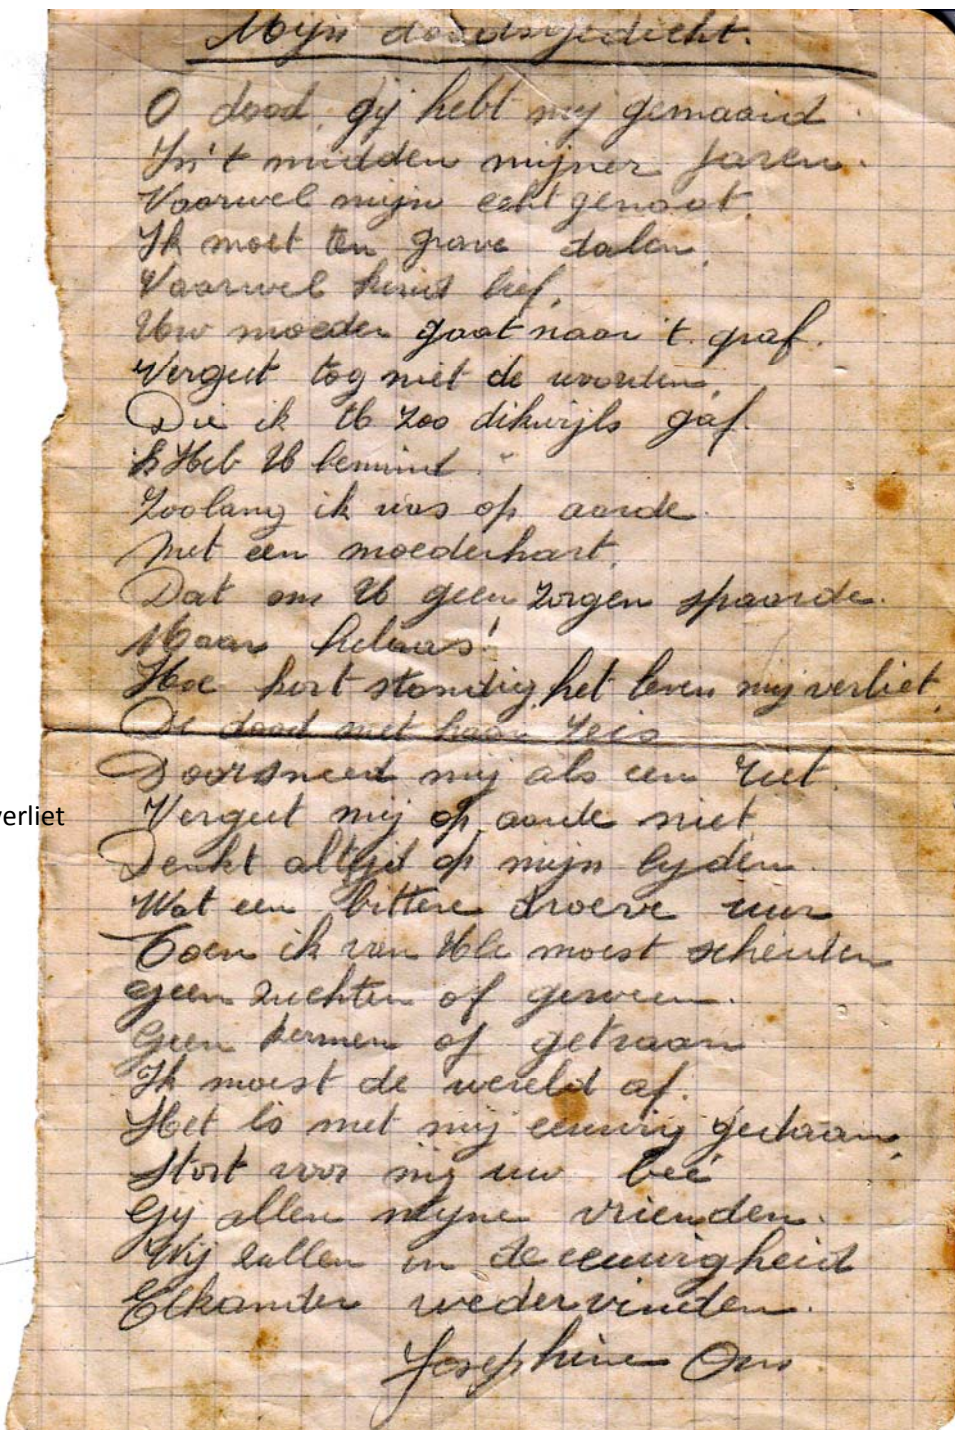 Mijn doodsgedicht.
O dood, gij hebt mij gemaaid
In 't midden mijner jaren.
Vaarwel mijn echtgenoot.
Ik moet ten grave dalen.
Vaarwel kind lief,
Uw moeder gaat naar 't graf.
Vergeet tog niet de woorden,
Die ik U zoo dikwijls gaf.
k Heb U bemind
Zoolang ik was op aarde
Met een moederhart,
Dat om U geen zorgen spaarde.
Maar helaas!
Hoe kort stondig het leven mij verliet,
De dood met haar zeis
Doorsneed mij als een riet.
verliet
Vergeet mij op aarde niet
Denkt altyd op mijn lyden
Wat een bittere droeve uur
Toen ik van Ule moest scheiden
geen zuchten of geween.
Geen kermen of getraan
Ik moest de wereld af.
Het is met mij eeuwig gedaan,
Stort voor mij uw beé
Gy allen mijne vrienden.
Wij zullen in de eeuwigheid
Elkander wedervinden.
Josephine